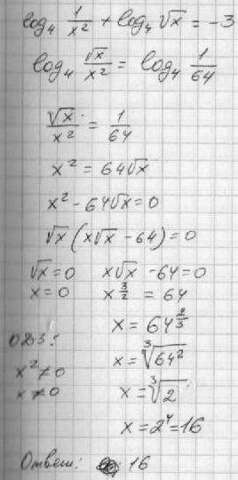 log₄ 1/x² + log₄ √x = -3
log₄ √x/x² = log₄ 1/64
√x/x² = 1/64
x² = 64√x
x² - 64√x = 0
√x (x√x - 64) = 0
√x = 0 x√x - 64 = 0
x = 0 x^(3/2) = 64
x = 64^(2/3)
ОДЗ: x = ∛(64²)
x² ≠ 0
x ≠ 0 x = ∛2
x = 2⁴ = 16
Ответ: 16